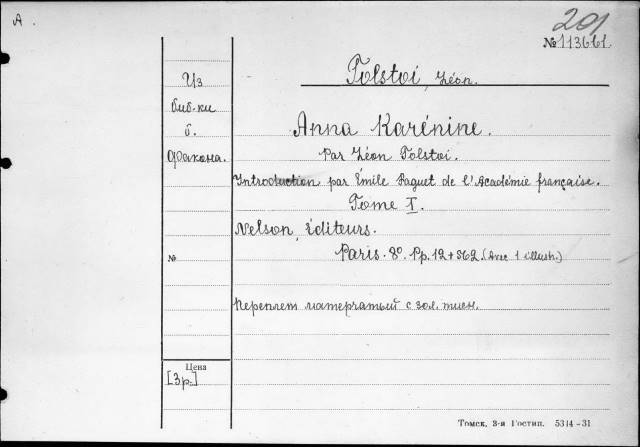 A.
201
№113661.
Tolstoi, Léon.
Из
биб-ки
б.
Факона.
Anna Karénine.
Par Léon Tolstoi.
Introduction par Émile Faguet de l'Académie française.
Tome I.
Nelson, Éditeurs.
№
Paris. 8º. Pp. 12 + 562. (Avec 1 illustr.)
Переплет матерчатый с зол. тисн.
Цена
[3 р.]
Томск, 3-я Гостип. 5314-31